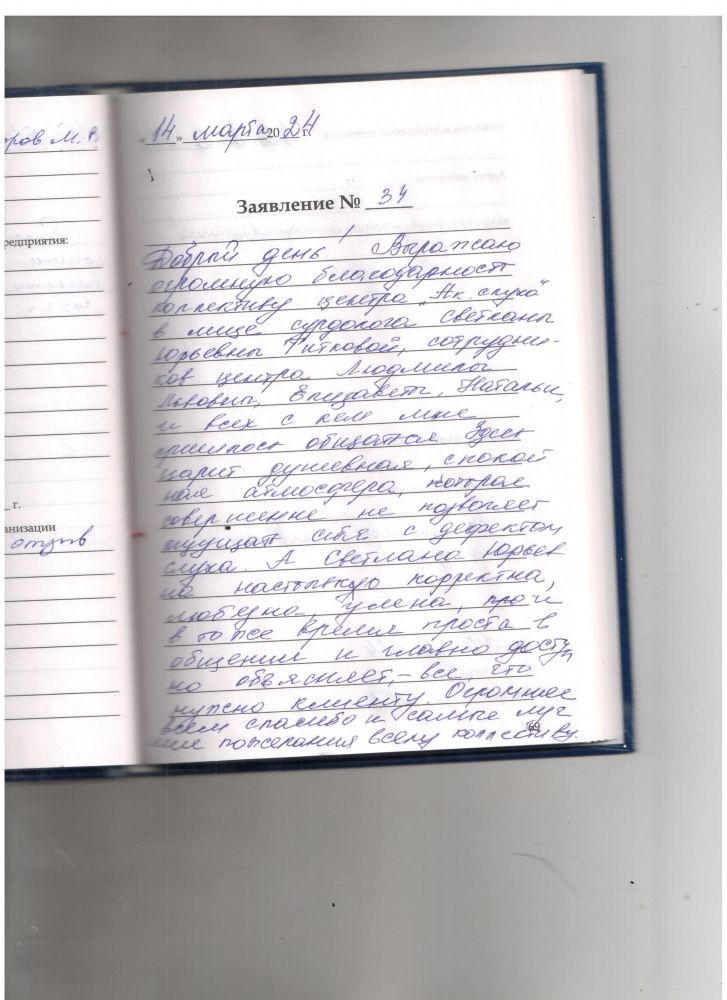 оров М. В
редприятия:
г.
анизации
отзыв
« 14 » марта 20 24 г.
Заявление № 34
Добрый день! Выражаю
огромную благодарность
коллективу центра „Ак. слуха"
в лице сурдолога Светланы
Юрьевны Титковой, сотрудни-
ков центра Людмилы
Львовны, Елизаветы, Натальи,
и всех с кем мне
пришлось общаться. Здесь
царит душевная, спокой
ная атмосфера, которая
совершенно не позволяет
ощущать себя с дефектом
слуха. А Светлана Юрьев
на настолько корректна,
любезна, умна, и
в то же время проста в
общении и главно доступ
но объясняет, – все что
нужно клиенту. Огромное
всем спасибо и самые луч
шие пожелания всему коллективу.
69